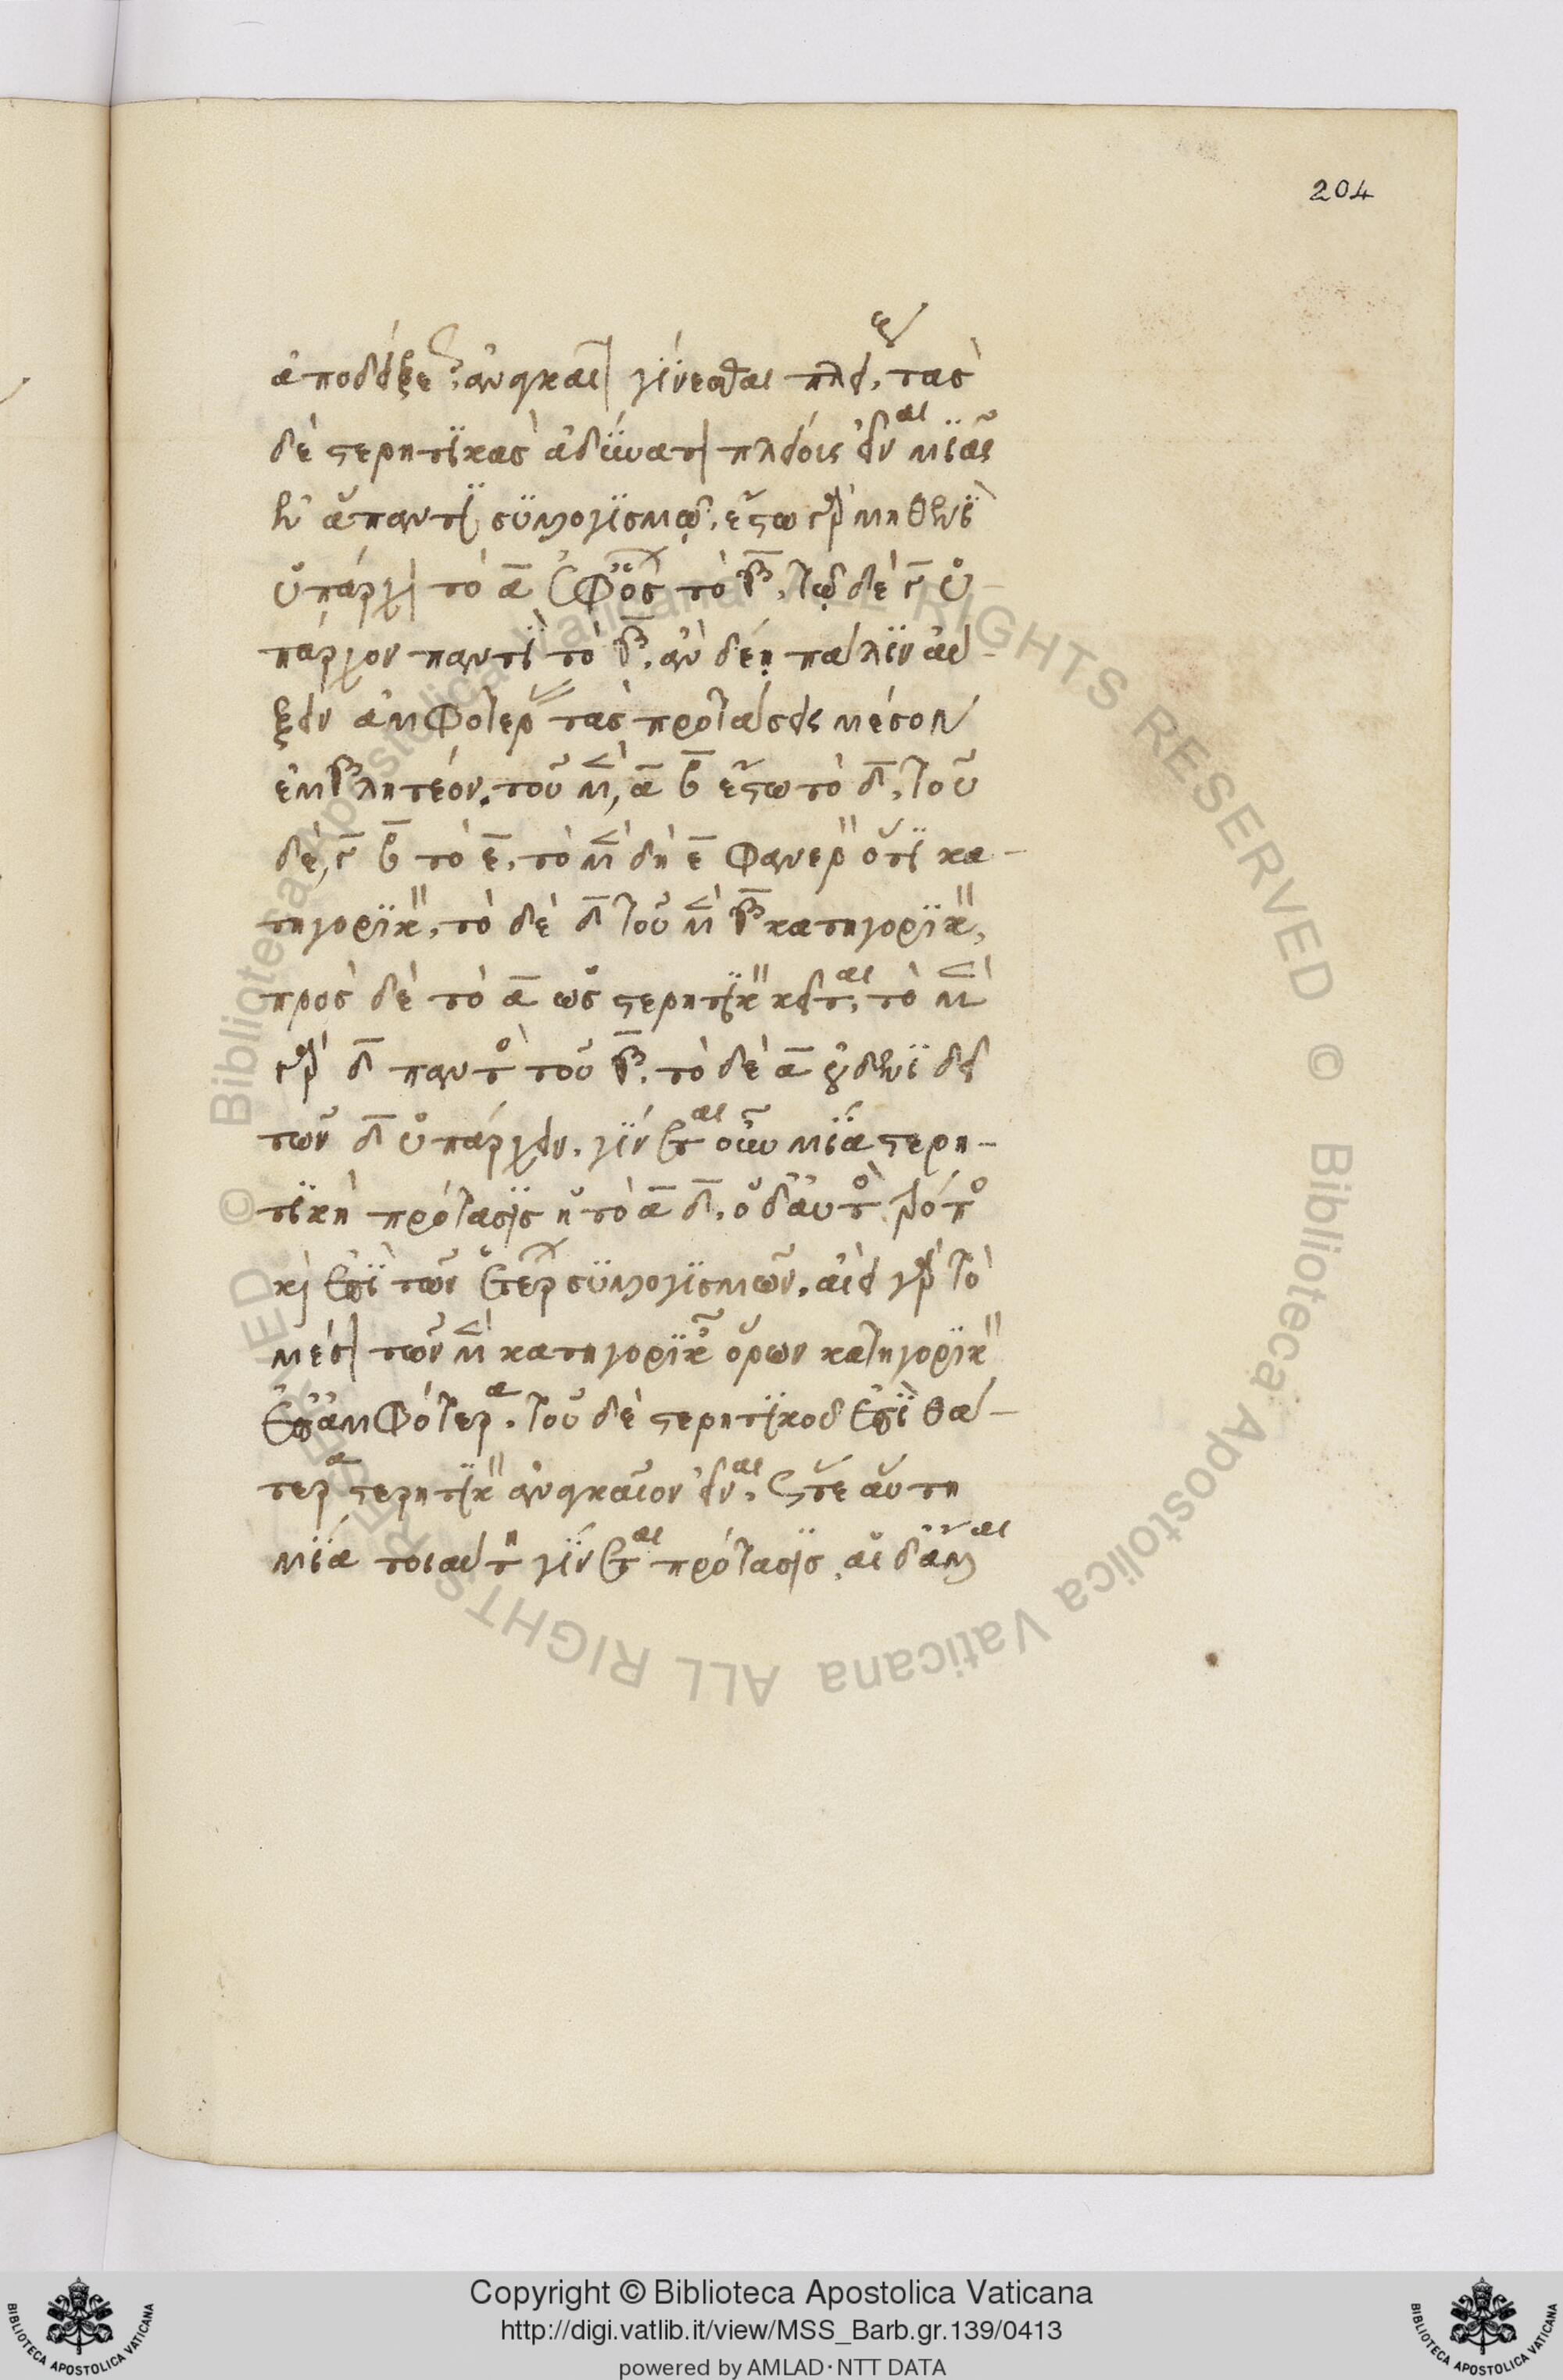 204
ἀποδείξεις ἀναγκαῖον γίνεσθαι πλείους, τὰς
δὲ στερητικὰς ἀδύνατον πλείους εἶναι μιᾶς
ἐν ἅπαντι συλλογισμῷ. ἔστω γὰρ μηδενὶ
ὑπάρχον τὸ α ἐφ' ὅσων τὸ β, τῷ δὲ γ ὑ-
πάρχον παντὶ τὸ β. ἂν δέῃ πάλιν αὔ-
ξειν ἀμφοτέρας τὰς προτάσεις μέσον
ἐμβλητέον. τοῦ μὲν α β ἔστω τὸ δ, τοῦ
δὲ γ β τὸ ε. τὸ μὲν δὴ ε φανερὸν ὅτι κα-
τηγορικῶς, τὸ δὲ δ τοῦ μὲν β κατηγορικῶς,
πρὸς δὲ τὸ α ὡς στερητικῶς κεῖται. τὸ μὲν
γὰρ δ παντὸς τοῦ β, τὸ δὲ α οὐδενὶ δεῖ
τῶν δ ὑπάρχειν. γίνεται οὖν μία στερη-
τικὴ πρότασις ἡ τὸ α δ. ὁ δ' αὐτὸς τρόπος
καὶ ἐπὶ τῶν ἑτέρων συλλογισμῶν. αἰεὶ γὰρ τὸ
μέσον τῶν μὲν κατηγορικῶν ὅρων κατηγορικῶς
ἐπ' ἀμφότερα. τοῦ δὲ στερητικοῦ ἐπὶ θά-
τερα στερητικῶς ἀναγκαῖον εἶναι. ὥστε αὕτη
μία τοιαύτη γίνεται πρότασις, αἱ δ' ἄλλαι
Copyright © Biblioteca Apostolica Vaticana
http://digi.vatlib.it/view/MSS_Barb.gr.139/0413
powered by AMLAD·NTT DATA
BIBLIOTECA APOSTOLICA VATICANA
BIBLIOTECA APOSTOLICA VATICANA
© Biblioteca Apostolica Vaticana ALL RIGHTS RESERVED © Biblioteca Apostolica Vaticana ALL RIGHTS RESERVED